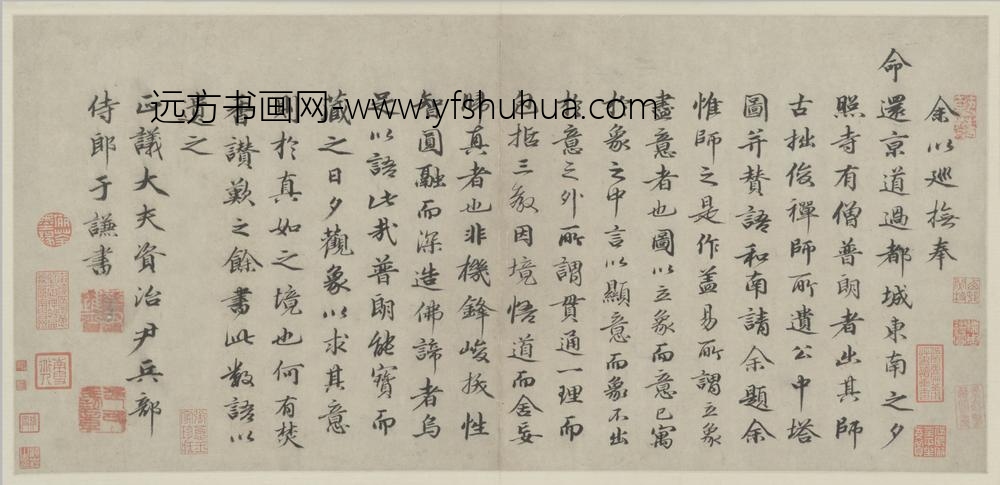 余以巡撫奉
命還京道過都城東南之夕
照寺有僧普朗者出其師
古拙俊禪師所遺公中塔
圖并贊語和南請余題余
惟師之是作蓋易所謂立象
盡意者也圖以立象而意已寓
於象之中言以顯意而象不出
於意之外所謂貫通一理而
包括三教因境悟道而舍妄
歸真者也非機鋒峻拔性
智圓融而深造佛諦者烏
足以語此哉普朗能寶而
藏之日夕觀象以求其意
則於真如之境也何有焚
香讚歎之餘書此數語以
遺之
正議大夫資治尹兵部
侍郎于謙書
远方书画网-www.yfshuhua.com